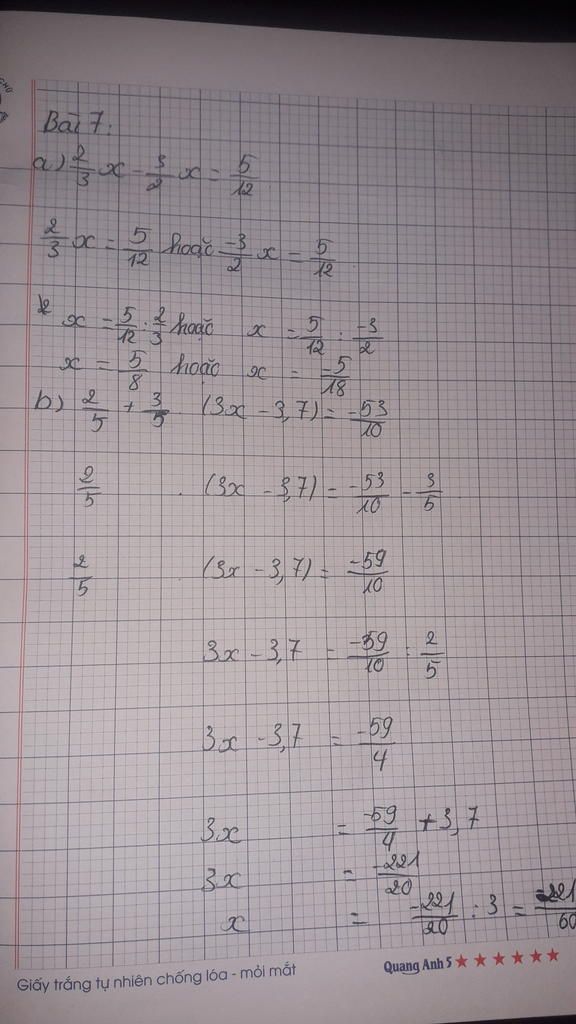 Bài 7:
a) 2/3 x - 3/2 x = 5/12
2/3 x = 5/12 hoặc -3/2 x = 5/12
x = 5/12 : 2/3 hoặc x = 5/12 : -3/2
x = 5/8 hoặc x = -5/18
b) 2/5 + 3/5 . (3x - 3,7) = -53/10
2/5 . (3x - 3,7) = -53/10 - 3/5
2/5 (3x - 3,7) = -59/10
3x - 3,7 = -59/10 : 2/5
3x - 3,7 = -59/4
3x = -59/4 + 3,7
3x = -221/20
x = -221/20 : 3 = -221/60
Giấy trắng tự nhiên chống lóa - mỏi mắt
Quang Anh 5 ★ ★ ★ ★ ★ ★